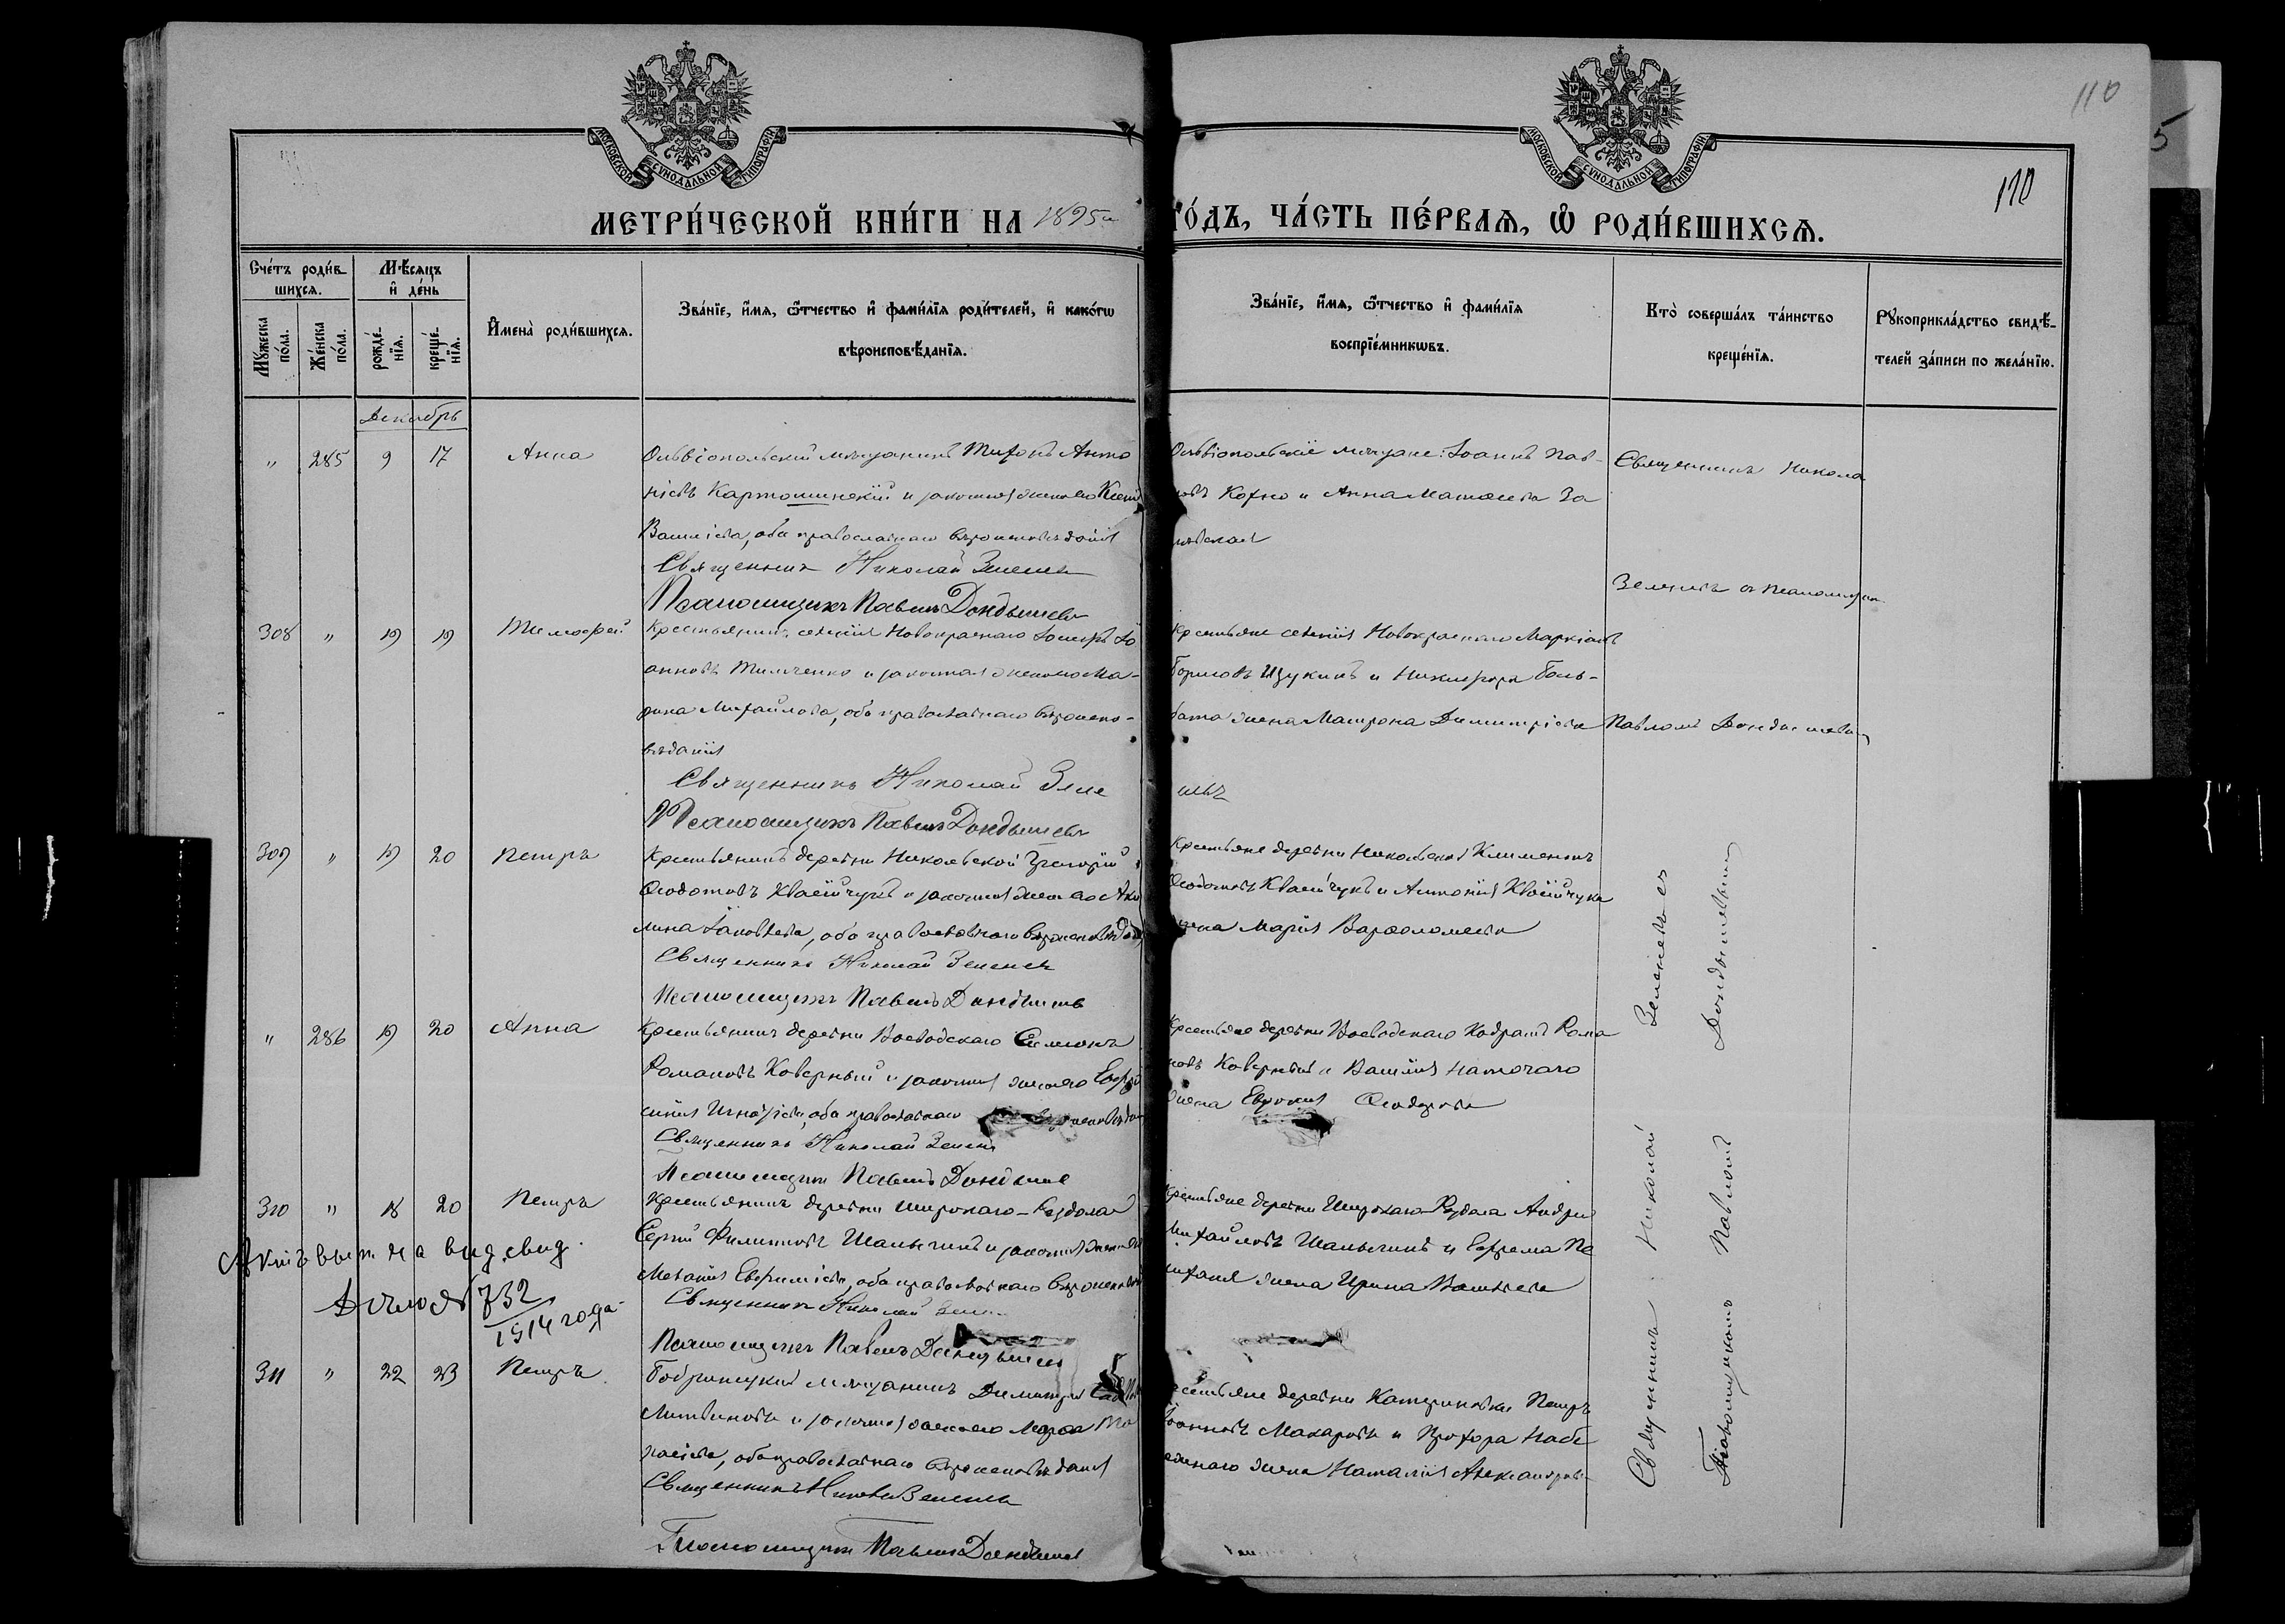 110
5
110
МОСКОВСКОЙ СУНОДАЛЬНОЙ ТИПОГРАФІИ
МОСКОВСКОЙ СУНОДАЛЬНОЙ ТИПОГРАФІИ
МЕТРИ́ЧЕСКОЙ КНИ́ГИ НА 1895й ГО́ДЪ, ЧА́СТЬ ПЕ́РВАѦ, Ѡ РОДИ́ВШИХСѦ.
Сче́тъ роди́в-
шихсѧ.
Мꙋ́жеска по́ла.
Же́нска по́ла.
Мѣ́сѧцъ и҆ де́нь
рожде́-
нїѧ.
креще́-
нїѧ.
И҆мена̀ роди́вшихсѧ.
Зва́нїе, и҆́мѧ, ѻ҆́тчество и҆ фами́лїѧ роди́телей, и҆ како́гѡ
вѣроисповѣ́данїѧ.
Зва́нїе, и҆́мѧ, ѻ҆́тчество и҆ фами́лїѧ
воспрїе́мникѡвъ.
Кто̀ соверша́лъ та́инство
креще́нїѧ.
Рꙋкоприкла́дство свидѣ́-
телей за́писи по жела́нїю.
Декабрь
" 285 9 17 Анна
Ольвіопольскій мѣщанинъ Тихонъ Анто
ніевъ Картошинскій и законная жена его Ксені
Василіева, оба православнаго вѣроисповѣданія
Священникъ Николай Зеленев
Псаломщикъ Павелъ Дондышевъ
Ольвіопольскіе мѣщане: Іоаннъ Пав-
ловъ Кохно и Анна Матѳеева За
Священникъ Никола
Зеленевъ съ псаломщик
308 " 19 19 Тимофей
Крестьянинъ селенія Новокраснаго Іосифъ Іо
анновъ Тимченко и законная жена его Ма-
рина Михайлова, оба православнаго вѣроиспо-
вѣданія
Священникъ Николай Зеле
Псаломщикъ Павелъ Дондышевъ
Крестьяне селенія Новокраснаго Маркіанъ
Борисовъ Щукинъ и Никифора Боль-
бата жена Матрона Димитріева
Павломъ Дондышевы
309 " 19 20 Петръ
Крестьянинъ деревни Никольской Григорій
Ѳеодотовъ Квасничукъ и законная жена его Аки
лина Іаковлева, оба православнаго вѣроисповѣдан
Священникъ Николай Зеленев
Псаломщикъ Павелъ Дондышевъ
Крестьяне деревни Никольской Климентъ
жена Марія Варѳоломеева
" 286 19 20 Анна
Крестьянинъ деревни Воеводскаго Симеонъ
Романовъ Коверный и законная жена его Евфро
синія Игнатіева, оба православнаго вѣроисповѣдан
Священникъ Николай Зелене
Псаломщикъ Павелъ Дондыше
Крестьяне деревни Воеводскаго Кодратъ Рома
новъ Коверный и Василія Наточаго
жена Евдокія Ѳеодорова
310 " 18 20 Петръ
Крестьянинъ деревни Широкаго-Раздола
Сергій Филипповъ Шалыгинъ и законная жена его
Меланія Евфиміева, оба православнаго вѣроисповѣ
Священникъ Николай Зеле
Псаломщикъ Павелъ Дондышевъ
Крестьяне деревни Широкаго-Раздола Андрей
Михайловъ Шалыгинъ и Ефрема Па
жена Ирина Васильева
Актъ вып. на вид. свид.
Дѣло № 732
1914 года
311 " 22 23 Петръ
Бобринецкій мѣщанинъ Димитрій
Литвиновъ и законная жена его Марѳа Та
расіева, оба православнаго вѣроисповѣданія
Священникъ Николай Зеленев
Псаломщикъ Павелъ Дондышев
крестьяне деревни Катериновки Петръ
Іоанновъ Макаровъ и Прохора Набе
режнаго жена Наталія Александров
Священникъ Николай Зеленевъ съ
Псаломщикомъ Павломъ Дондышевымъ